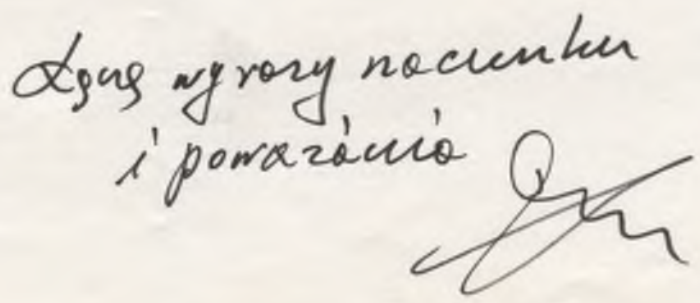 Łączę wyrazy szacunku
i poważania